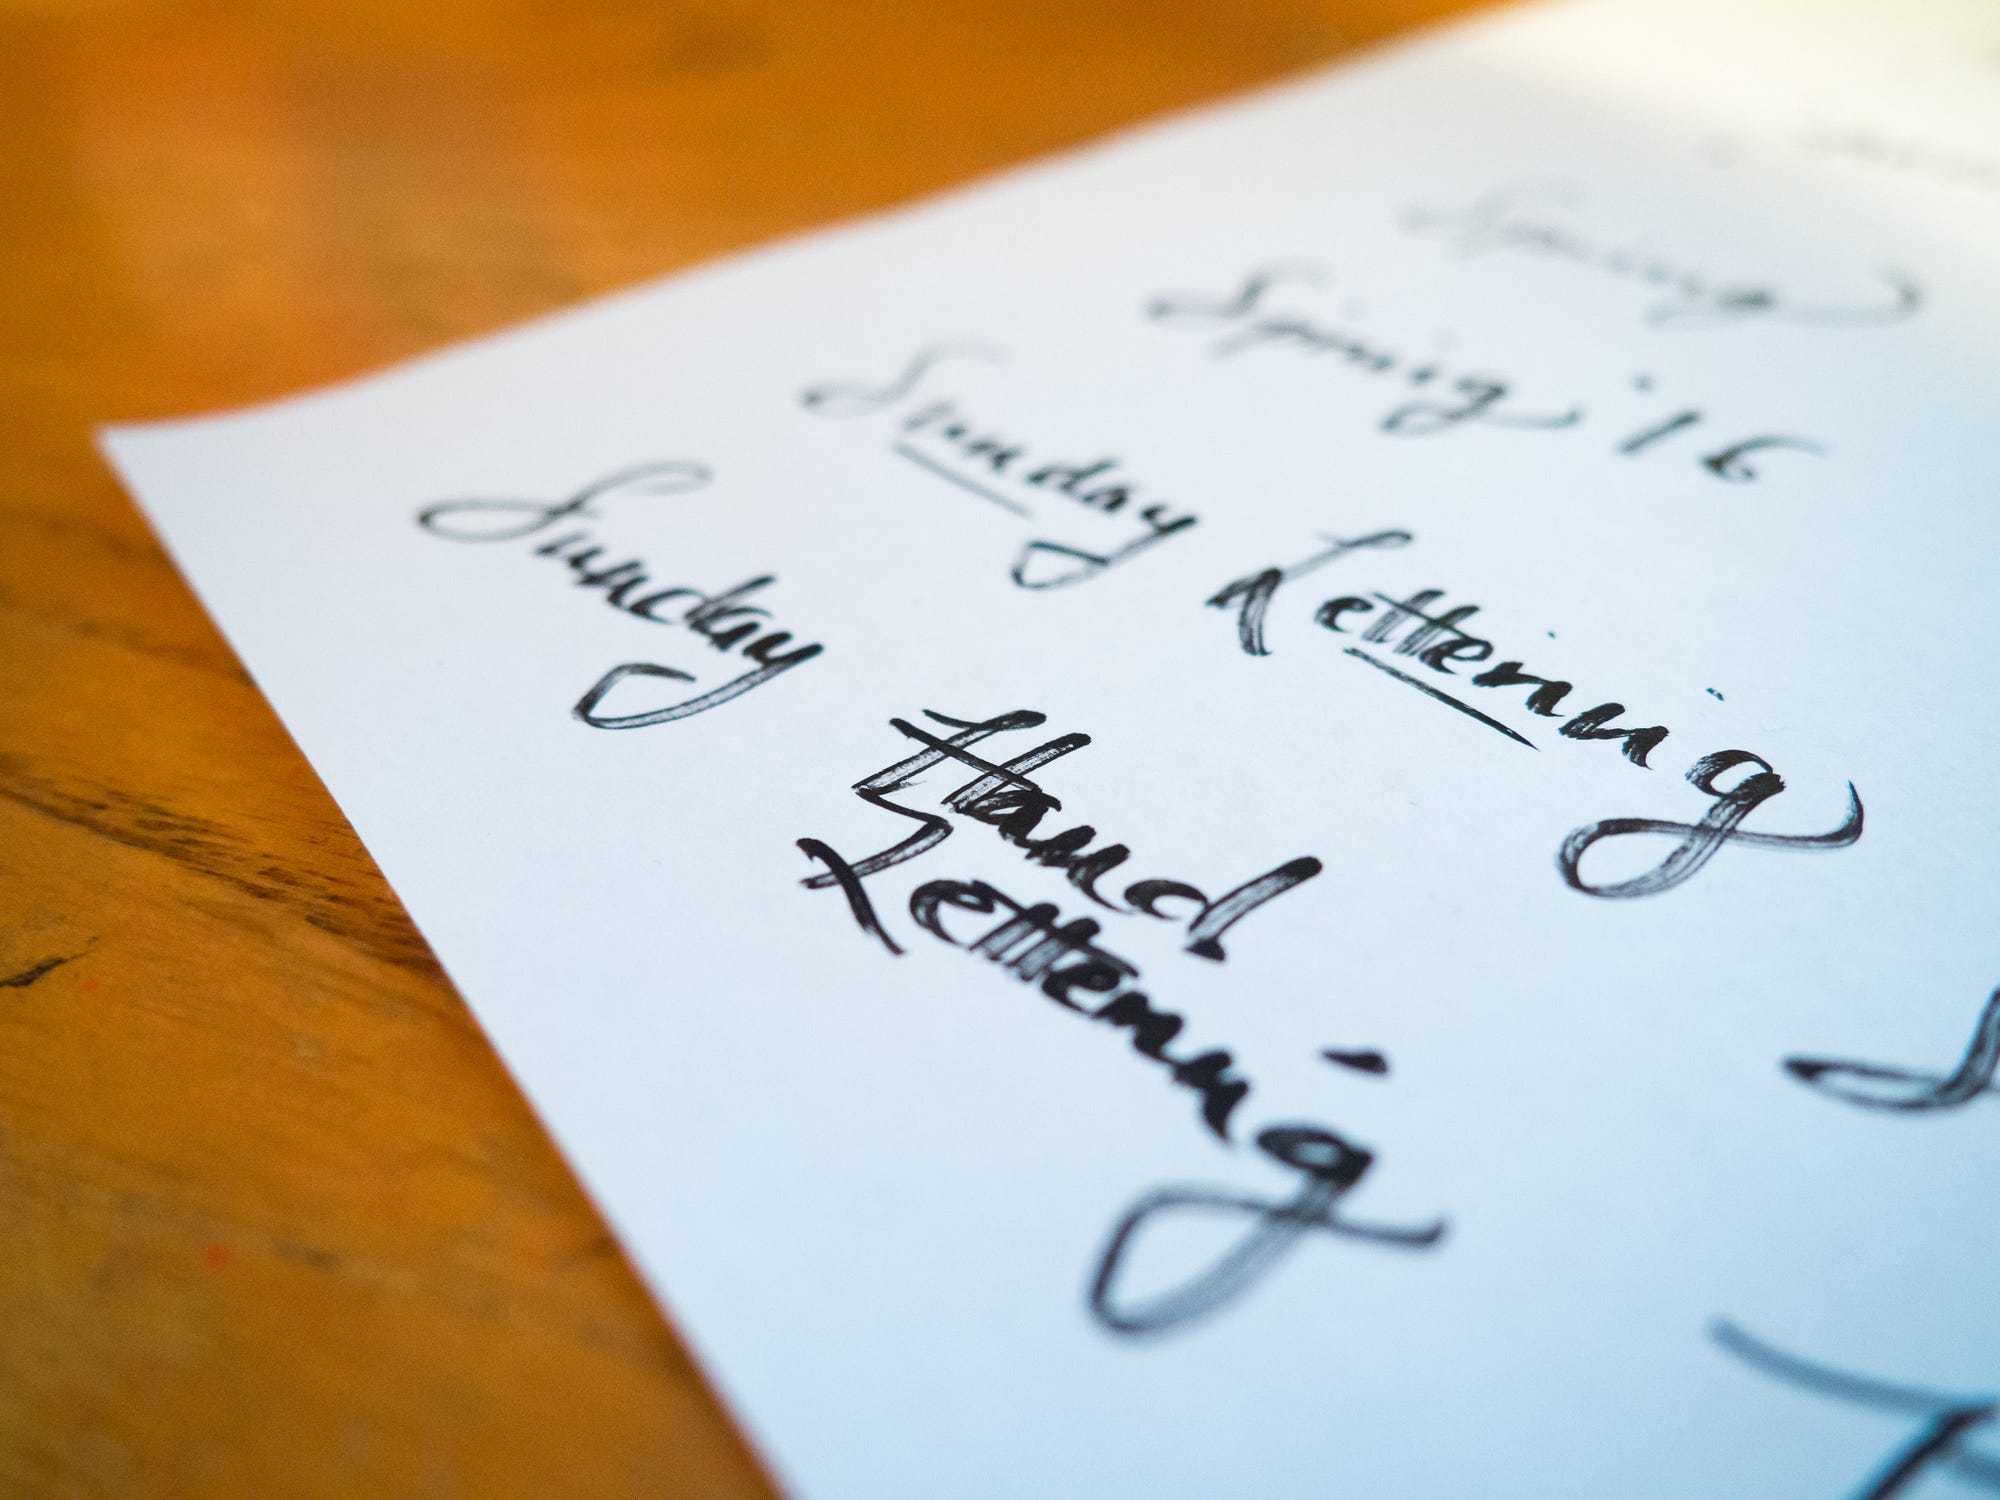 Spring
Spring '16
Sunday Lettering
Sunday
Hand
Lettering